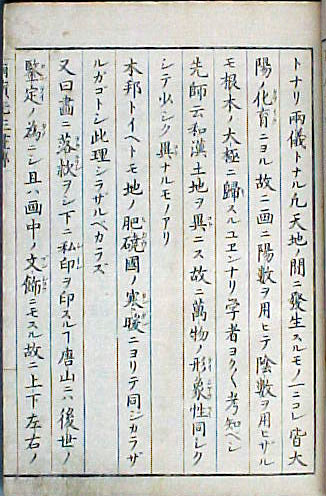 トナリ兩儀トナル凡天地ノ間ニ發生スルモノ一ニコレ皆大
陽ノ化育ニヨル故ニ画ニ陽數ヲ用ヒテ陰數ヲ用ヒザル
モ根本ノ大極ニ歸スルユヱンナリ学者ヨク〱考知ベシ
先師云和漢土地ヲ異ニス故ニ萬物ノ形象性同シク
シテ少シク異ナルモノアリ
本邦トイヘトモ地ノ肥磽國ノ寒暖ニヨリテ同シカラザ
ルガゴトシ此理シラザルベカラズ
又曰畵ニ落款ヲシ下ニ私印ヲ印スルヿ唐山ニハ後世ノ
鑒定ノ為ニシ且ハ画中ノ文飾ニモスル故ニ上下左右ノ